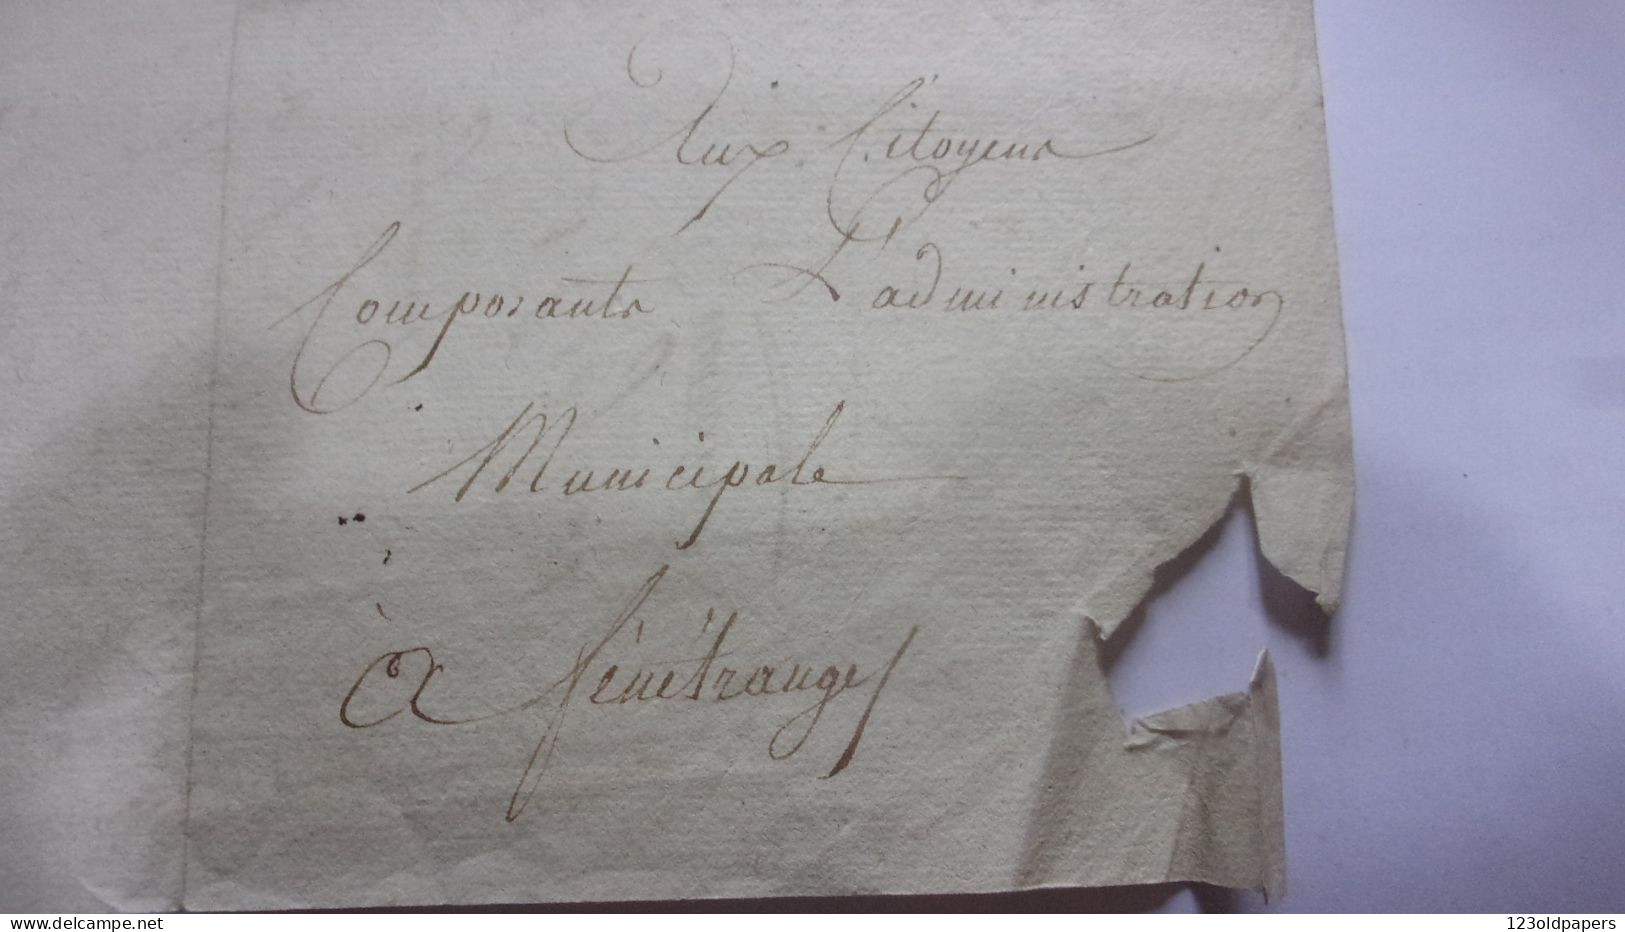 Aux Citoyens
Composants L'administration
Municipale
à fénétrange
delcampe.net
123oldpapers